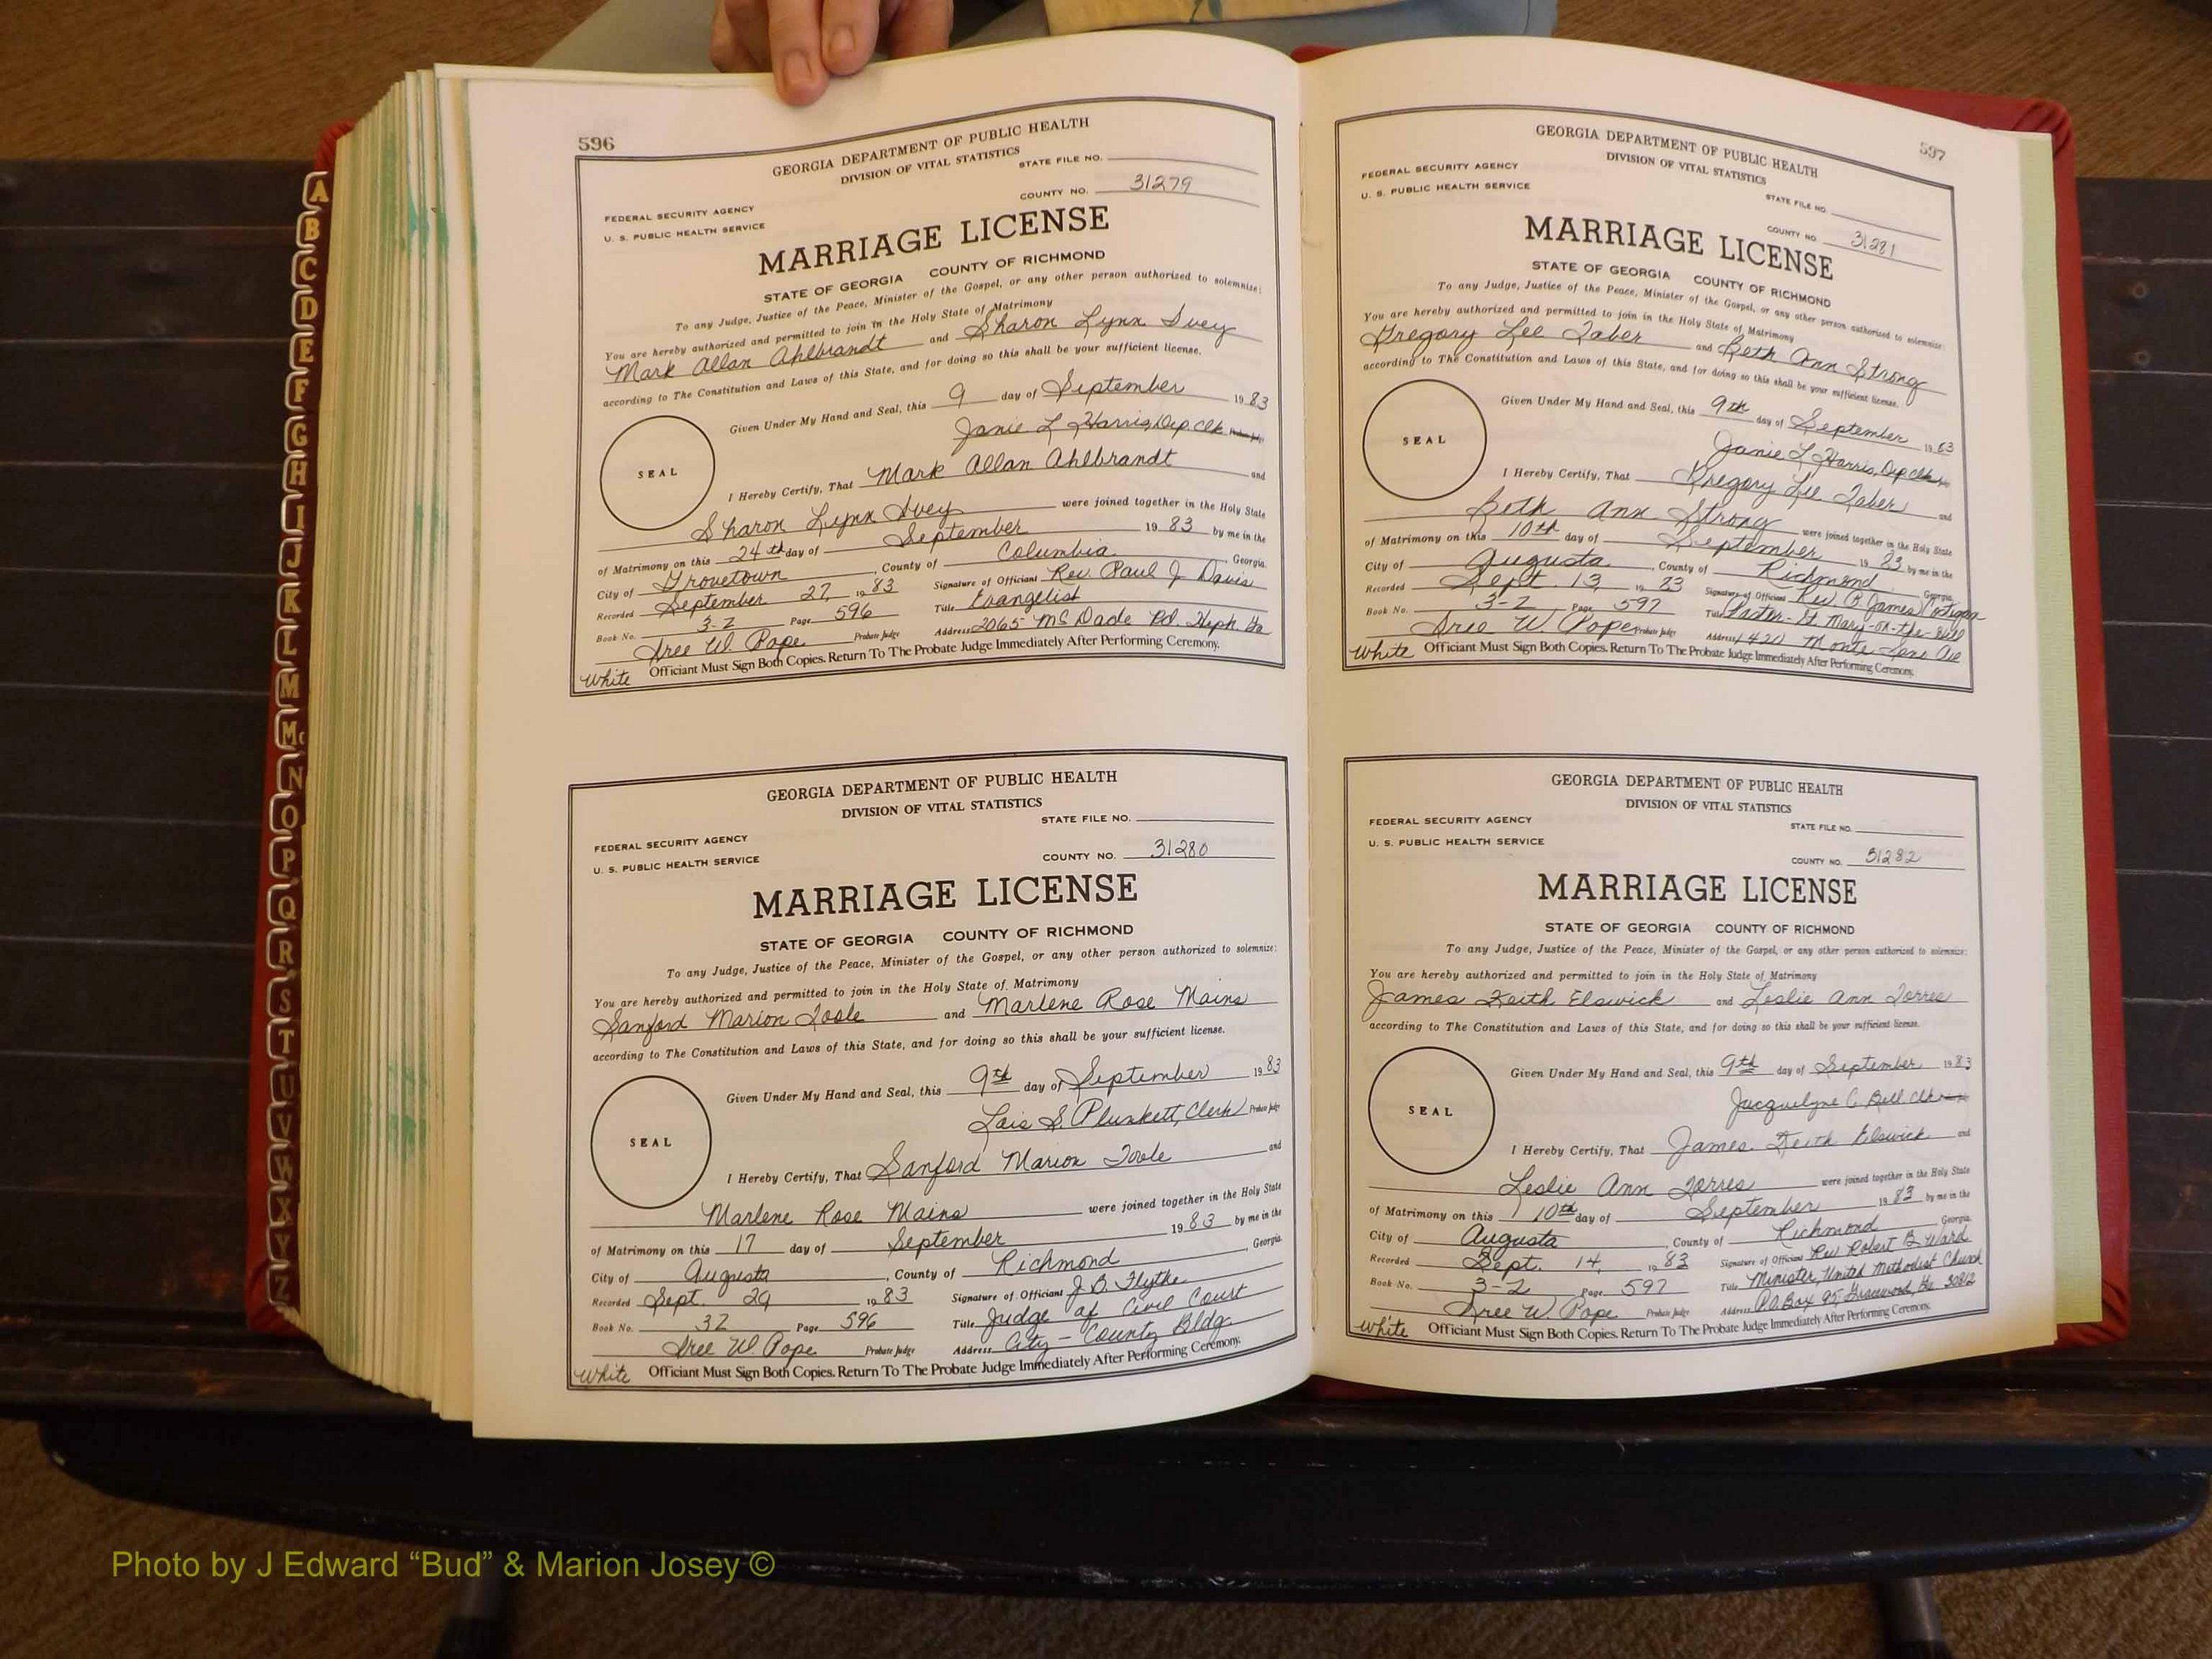 A
B
C
D
E
F
G
H
I
J
K
L
M
Mc
N
O
P
Q
R
S
T
U
V
W
X
Y
Z
596
GEORGIA DEPARTMENT OF PUBLIC HEALTH
DIVISION OF VITAL STATISTICS
STATE FILE NO.
COUNTY NO. 31279
FEDERAL SECURITY AGENCY
U. S. PUBLIC HEALTH SERVICE
MARRIAGE LICENSE
STATE OF GEORGIA COUNTY OF RICHMOND
To any Judge, Justice of the Peace, Minister of the Gospel, or any other person authorized to solemnize:
You are hereby authorized and permitted to join in the Holy State of Matrimony
Mark Allan Ahlbrandt and Sharon Lynn Ivey
according to The Constitution and Laws of this State, and for doing so this shall be your sufficient license.
Given Under My Hand and Seal, this 9 day of September 1983
Janie L Harris, Dep Clk Probate Judge
SEAL
I Hereby Certify, That Mark Allan Ahlbrandt and
Sharon Lynn Ivey were joined together in the Holy State
of Matrimony on this 24th day of September 1983 by me in the
City of Grovetown, County of Columbia, Georgia.
Recorded September 27, 1983 Signature of Officiant Rev. Paul J Davis
Book No. 3-Z Page 596 Title Evangelist
Iree W. Pope Probate Judge Address 2065 McDade Rd. Heph. Ga
White Officiant Must Sign Both Copies. Return To The Probate Judge Immediately After Performing Ceremony.
GEORGIA DEPARTMENT OF PUBLIC HEALTH
DIVISION OF VITAL STATISTICS
STATE FILE NO.
FEDERAL SECURITY AGENCY
U. S. PUBLIC HEALTH SERVICE
COUNTY NO. 31280
MARRIAGE LICENSE
STATE OF GEORGIA COUNTY OF RICHMOND
To any Judge, Justice of the Peace, Minister of the Gospel, or any other person authorized to solemnize:
You are hereby authorized and permitted to join in the Holy State of Matrimony
Sanford Marion Toole and Marlene Rose Mains
according to The Constitution and Laws of this State, and for doing so this shall be your sufficient license.
Given Under My Hand and Seal, this 9th day of September 1983
Lois S. Plunkett, Clerk Probate Judge
SEAL
I Hereby Certify, That Sanford Marion Toole and
Marlene Rose Mains were joined together in the Holy State
of Matrimony on this 17 day of September 1983 by me in the
City of Augusta, County of Richmond, Georgia.
Recorded Sept. 29 1983 Signature of Officiant J. B. Flythe
Book No. 3Z Page 596 Title Judge of Civil Court
Iree W Pope Probate Judge Address City - County Bldg.
White Officiant Must Sign Both Copies. Return To The Probate Judge Immediately After Performing Ceremony.
597
GEORGIA DEPARTMENT OF PUBLIC HEALTH
DIVISION OF VITAL STATISTICS
FEDERAL SECURITY AGENCY
U. S. PUBLIC HEALTH SERVICE
STATE FILE NO.
COUNTY NO. 31281
MARRIAGE LICENSE
STATE OF GEORGIA COUNTY OF RICHMOND
To any Judge, Justice of the Peace, Minister of the Gospel, or any other person authorized to solemnize:
You are hereby authorized and permitted to join in the Holy State of Matrimony
Gregory Lee Taber and Beth Ann Strong
according to The Constitution and Laws of this State, and for doing so this shall be your sufficient license.
Given Under My Hand and Seal, this 9th day of September 1983
Janie L Harris, Dep Clk
SEAL
I Hereby Certify, That Gregory Lee Taber and
Beth Ann Strong were joined together in the Holy State
of Matrimony on this 10th day of September 1983 by me in the
City of Augusta, County of Richmond Georgia.
Recorded Sept. 13 1983 Signature of Officiant Rev. B. James
Book No. 3-Z Page 597 Title Pastor - St. Mary-on-the-Hill
Iree W. Pope Probate Judge Address 1420 Monte Sano Ave
White Officiant Must Sign Both Copies. Return To The Probate Judge Immediately After Performing Ceremony.
GEORGIA DEPARTMENT OF PUBLIC HEALTH
DIVISION OF VITAL STATISTICS
FEDERAL SECURITY AGENCY
STATE FILE NO.
U. S. PUBLIC HEALTH SERVICE
COUNTY NO. 31282
MARRIAGE LICENSE
STATE OF GEORGIA COUNTY OF RICHMOND
To any Judge, Justice of the Peace, Minister of the Gospel, or any other person authorized to solemnize:
You are hereby authorized and permitted to join in the Holy State of Matrimony
James Keith Elswick and Leslie Ann Torres
according to The Constitution and Laws of this State, and for doing so this shall be your sufficient license.
Given Under My Hand and Seal, this 9th day of September 1983
Jacquelyne C. Bell, Clk
SEAL
I Hereby Certify, That James Keith Elswick and
Leslie Ann Torres were joined together in the Holy State
of Matrimony on this 10th day of September 1983 by me in the
City of Augusta, County of Richmond Georgia.
Recorded Sept. 14, 1983 Signature of Officiant Rev Robert B. Ward
Book No. 3-Z Page 597 Title Minister, United Methodist Church
Iree W. Pope Probate Judge Address P.O. Box 95, Ga 30812
White Officiant Must Sign Both Copies. Return To The Probate Judge Immediately After Performing Ceremony.
Photo by J Edward “Bud” & Marion Josey ©